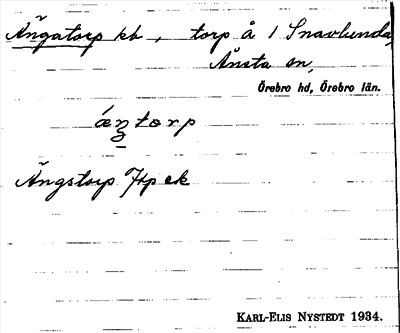 Ängatorp kb, torp å 1 Snavlunda,
Ånsta sn,
Örebro hd, Örebro län.
Ängstorp Jtp ek
KARL-ELIS NYSTEDT 1934.